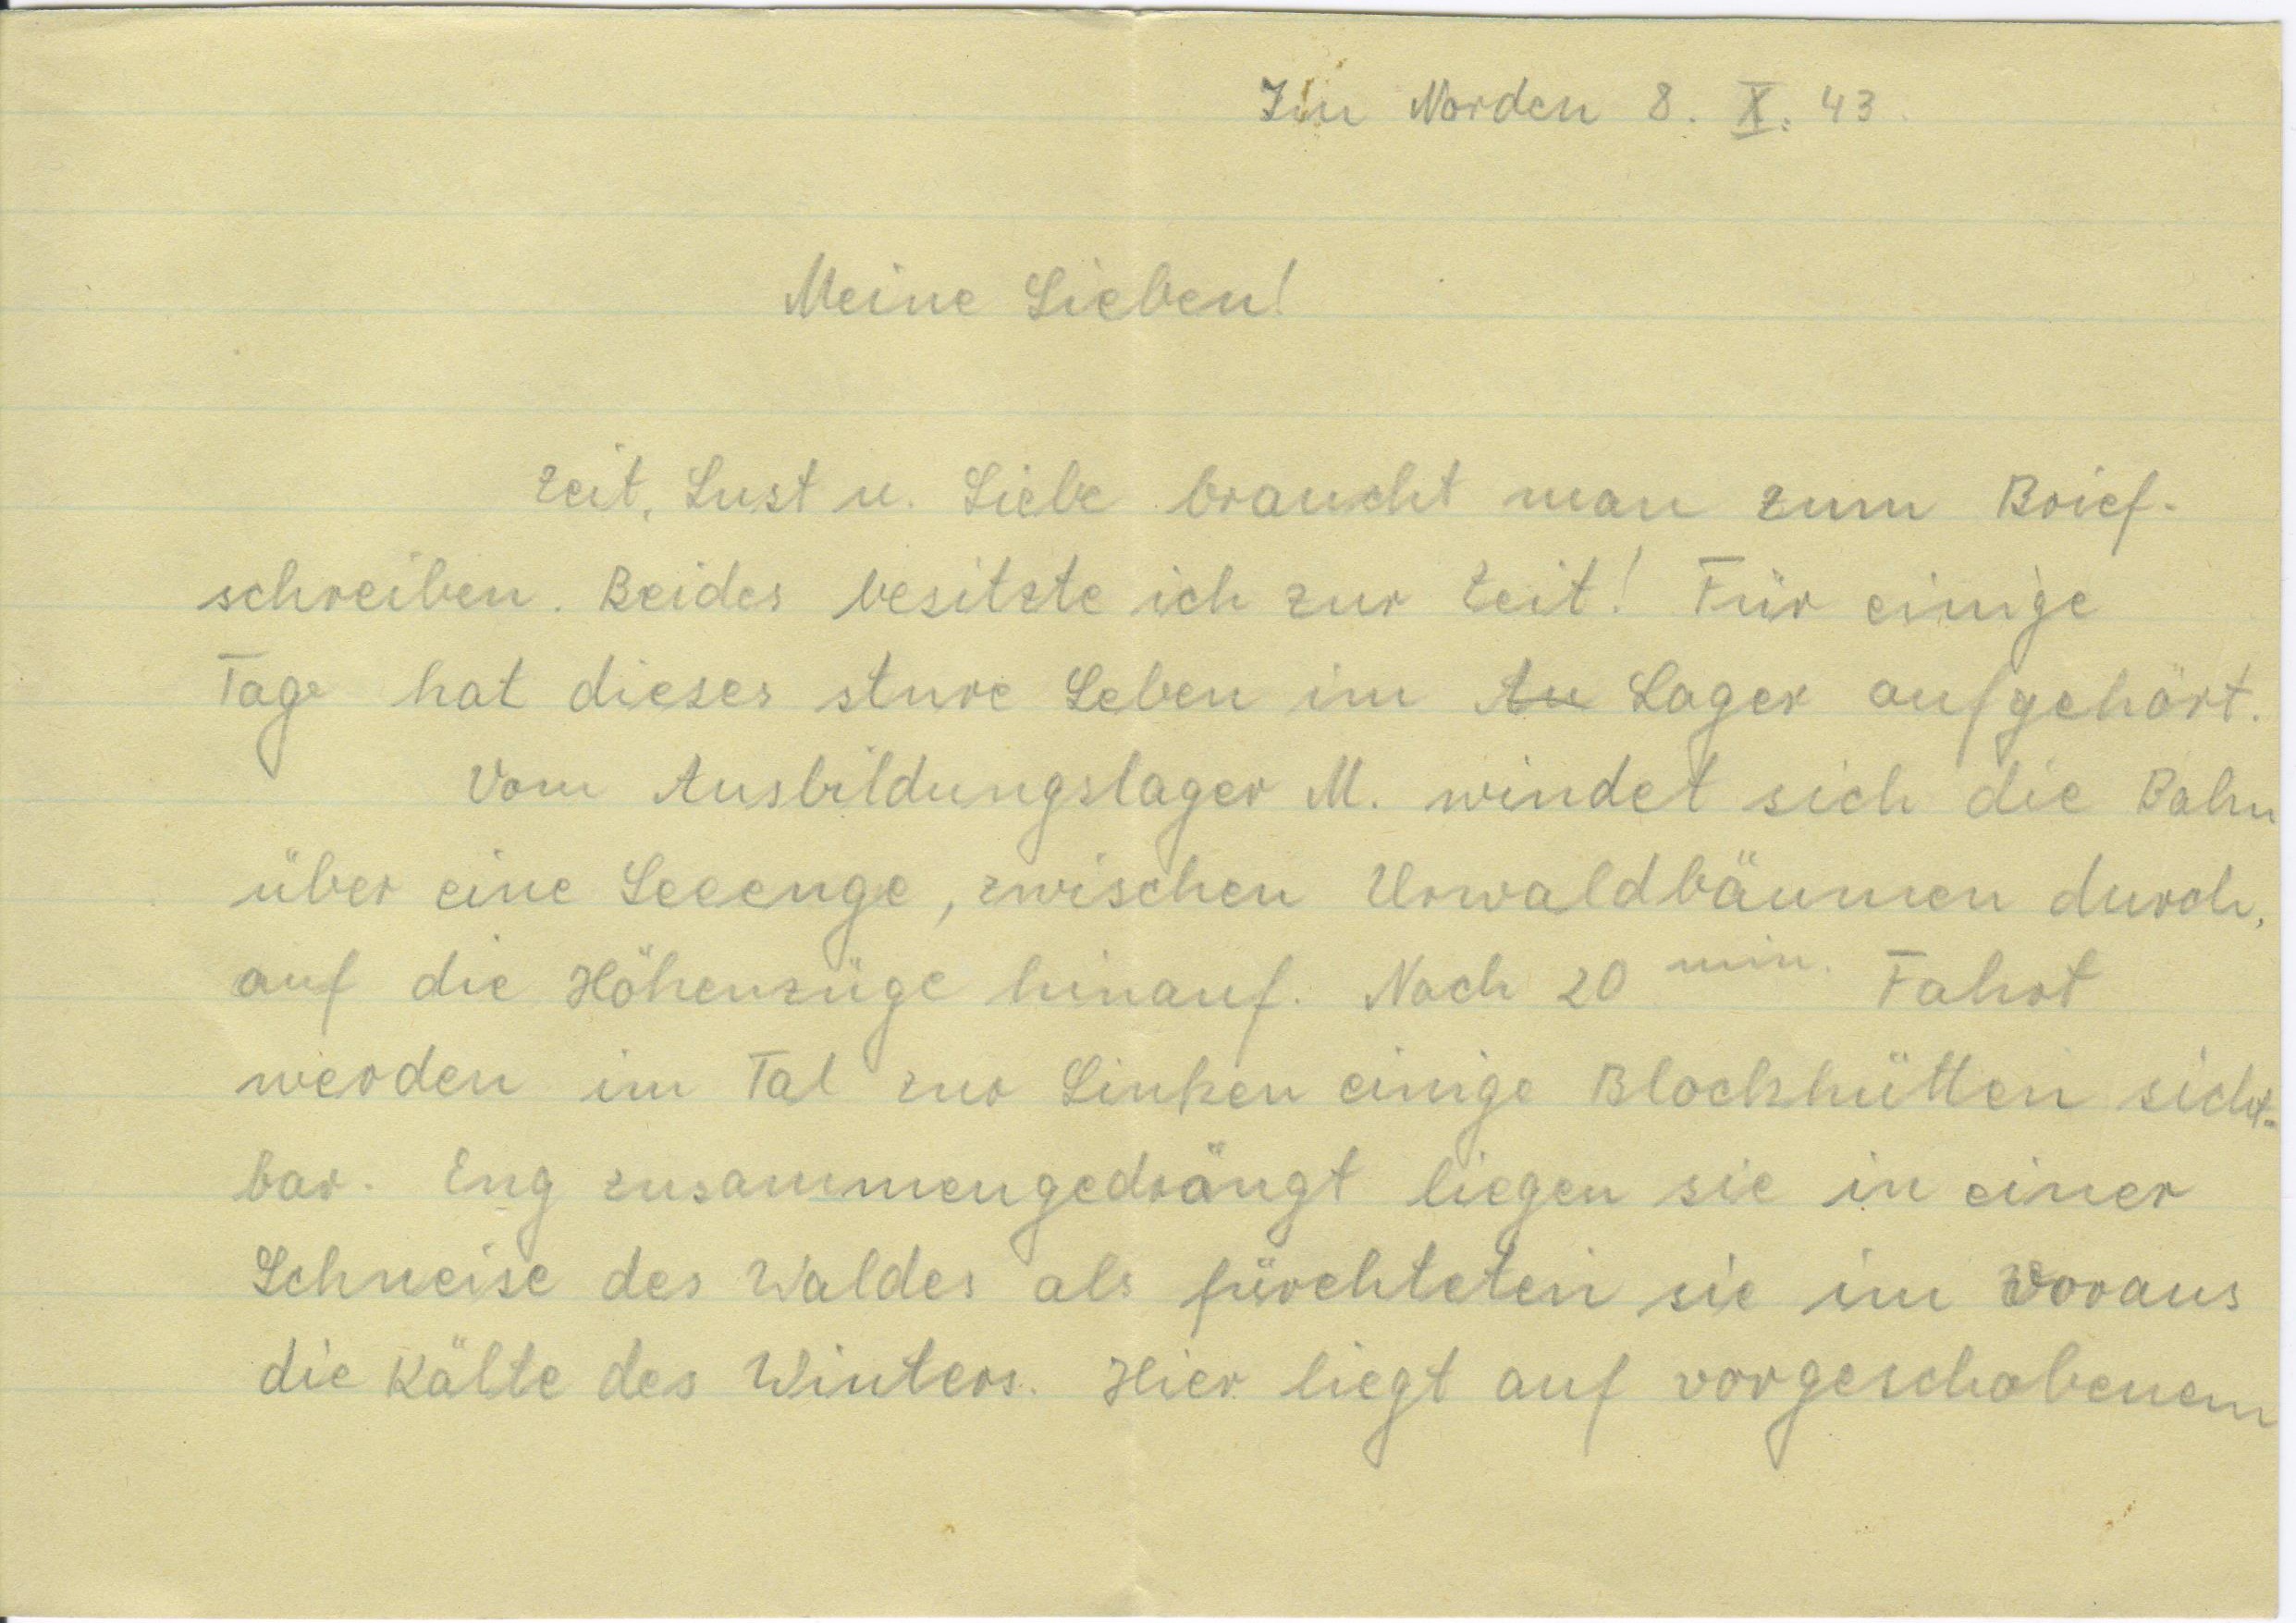 Im Norden 8. X. 43.
Meine Lieben!
Zeit, Lust u. Liebe braucht man zum Brief-
schreiben. Beides besitzte ich zur Zeit! Für einige
Tage hat dieses sture Leben im Au Lager aufgehört.
Vom Ausbildungslager M. windet sich die Bahn
über eine Seeenge, zwischen Urwaldbäumen durch,
auf die Höhenzüge hinauf. Nach 20 min. Fahrt
werden im Tal zur Linken einige Blockhütten sicht-
bar. Eng zusammengedrängt liegen sie in einer
Schneise des Waldes als fürchteten sie im voraus
die Kälte des Winters. Hier liegt auf vorgeschobenem